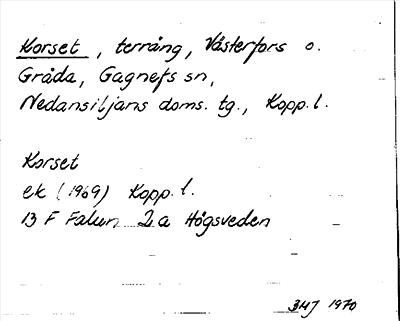 Korset, terräng, Västerfors o.
Gråda, Gagnefs sn,
Nedansiljans doms. tg., Kopp. l.
Korset
ek (1969) Kopp. l.
13 F Falun 2 a Högsveden
1970